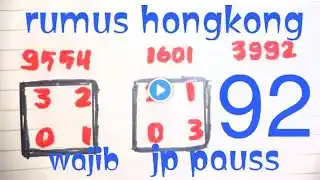 rumus hongkong
9554 1601 3992
3 2 1 92
0 1 0 3
wajib jp pauss